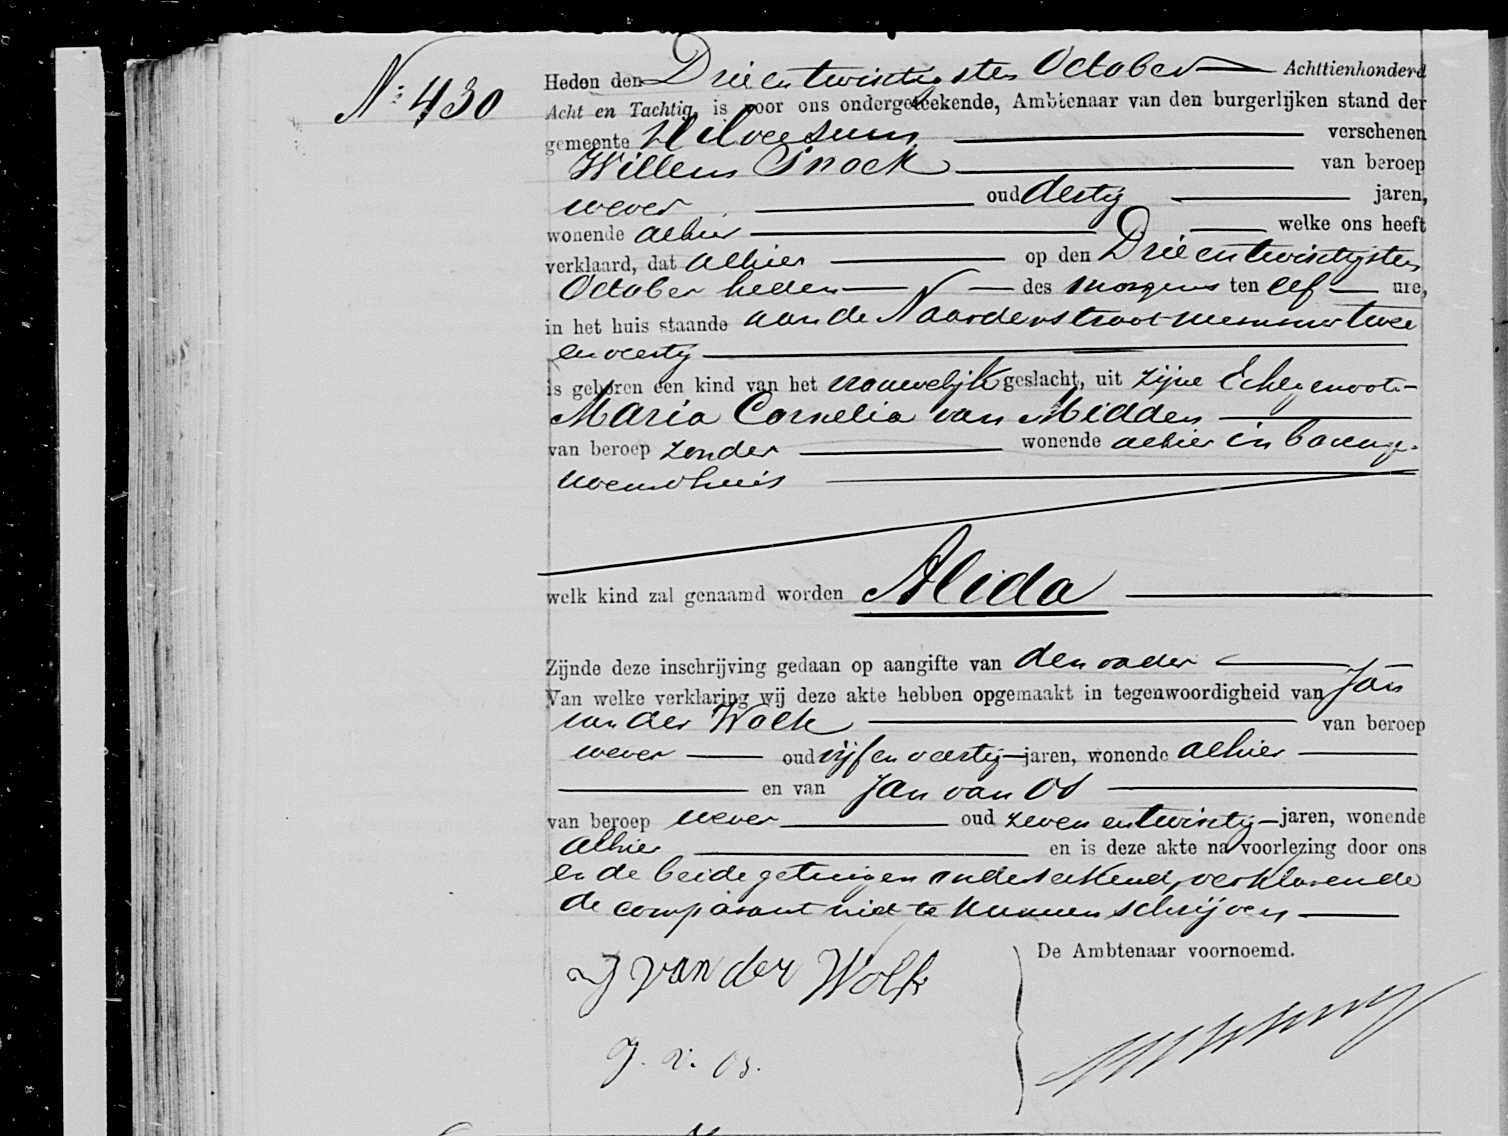 N: 430
Heden den Drie en twintigsten October Achttienhonderd
Acht en Tachtig, is voor ons ondergeteekende, Ambtenaar van den burgerlijken stand der
gemeente Hilversum verschenen
Willem Snoek van beroep
wever oud dertig jaren,
wonende alhier welke ons heeft
verklaard, dat alhier op den Drie en twintigsten
October heden des morgens ten elf ure,
in het huis staande aan de Naarderstraat nummer twee
en veertig
is geboren een kind van het vrouwelijk geslacht, uit zijne Echtgenoote
Maria Cornelia van Midden
van beroep zonder wonende alhier in bovenge-
noemd huis
welk kind zal genaamd worden Alida
Zijnde deze inschrijving gedaan op aangifte van den vader
Van welke verklaring wij deze akte hebben opgemaakt in tegenwoordigheid van Jan
van der Wolk van beroep
wever oud vijf en veertig jaren, wonende alhier
en van Jan van Os
van beroep wever oud zeven en twintig jaren, wonende
alhier en is deze akte na voorlezing door ons
en de beide getuigen onderteekend, verklarende
de comparant niet te kunnen schrijven
De Ambtenaar voornoemd.
J van der Wolk
J. v. Os.